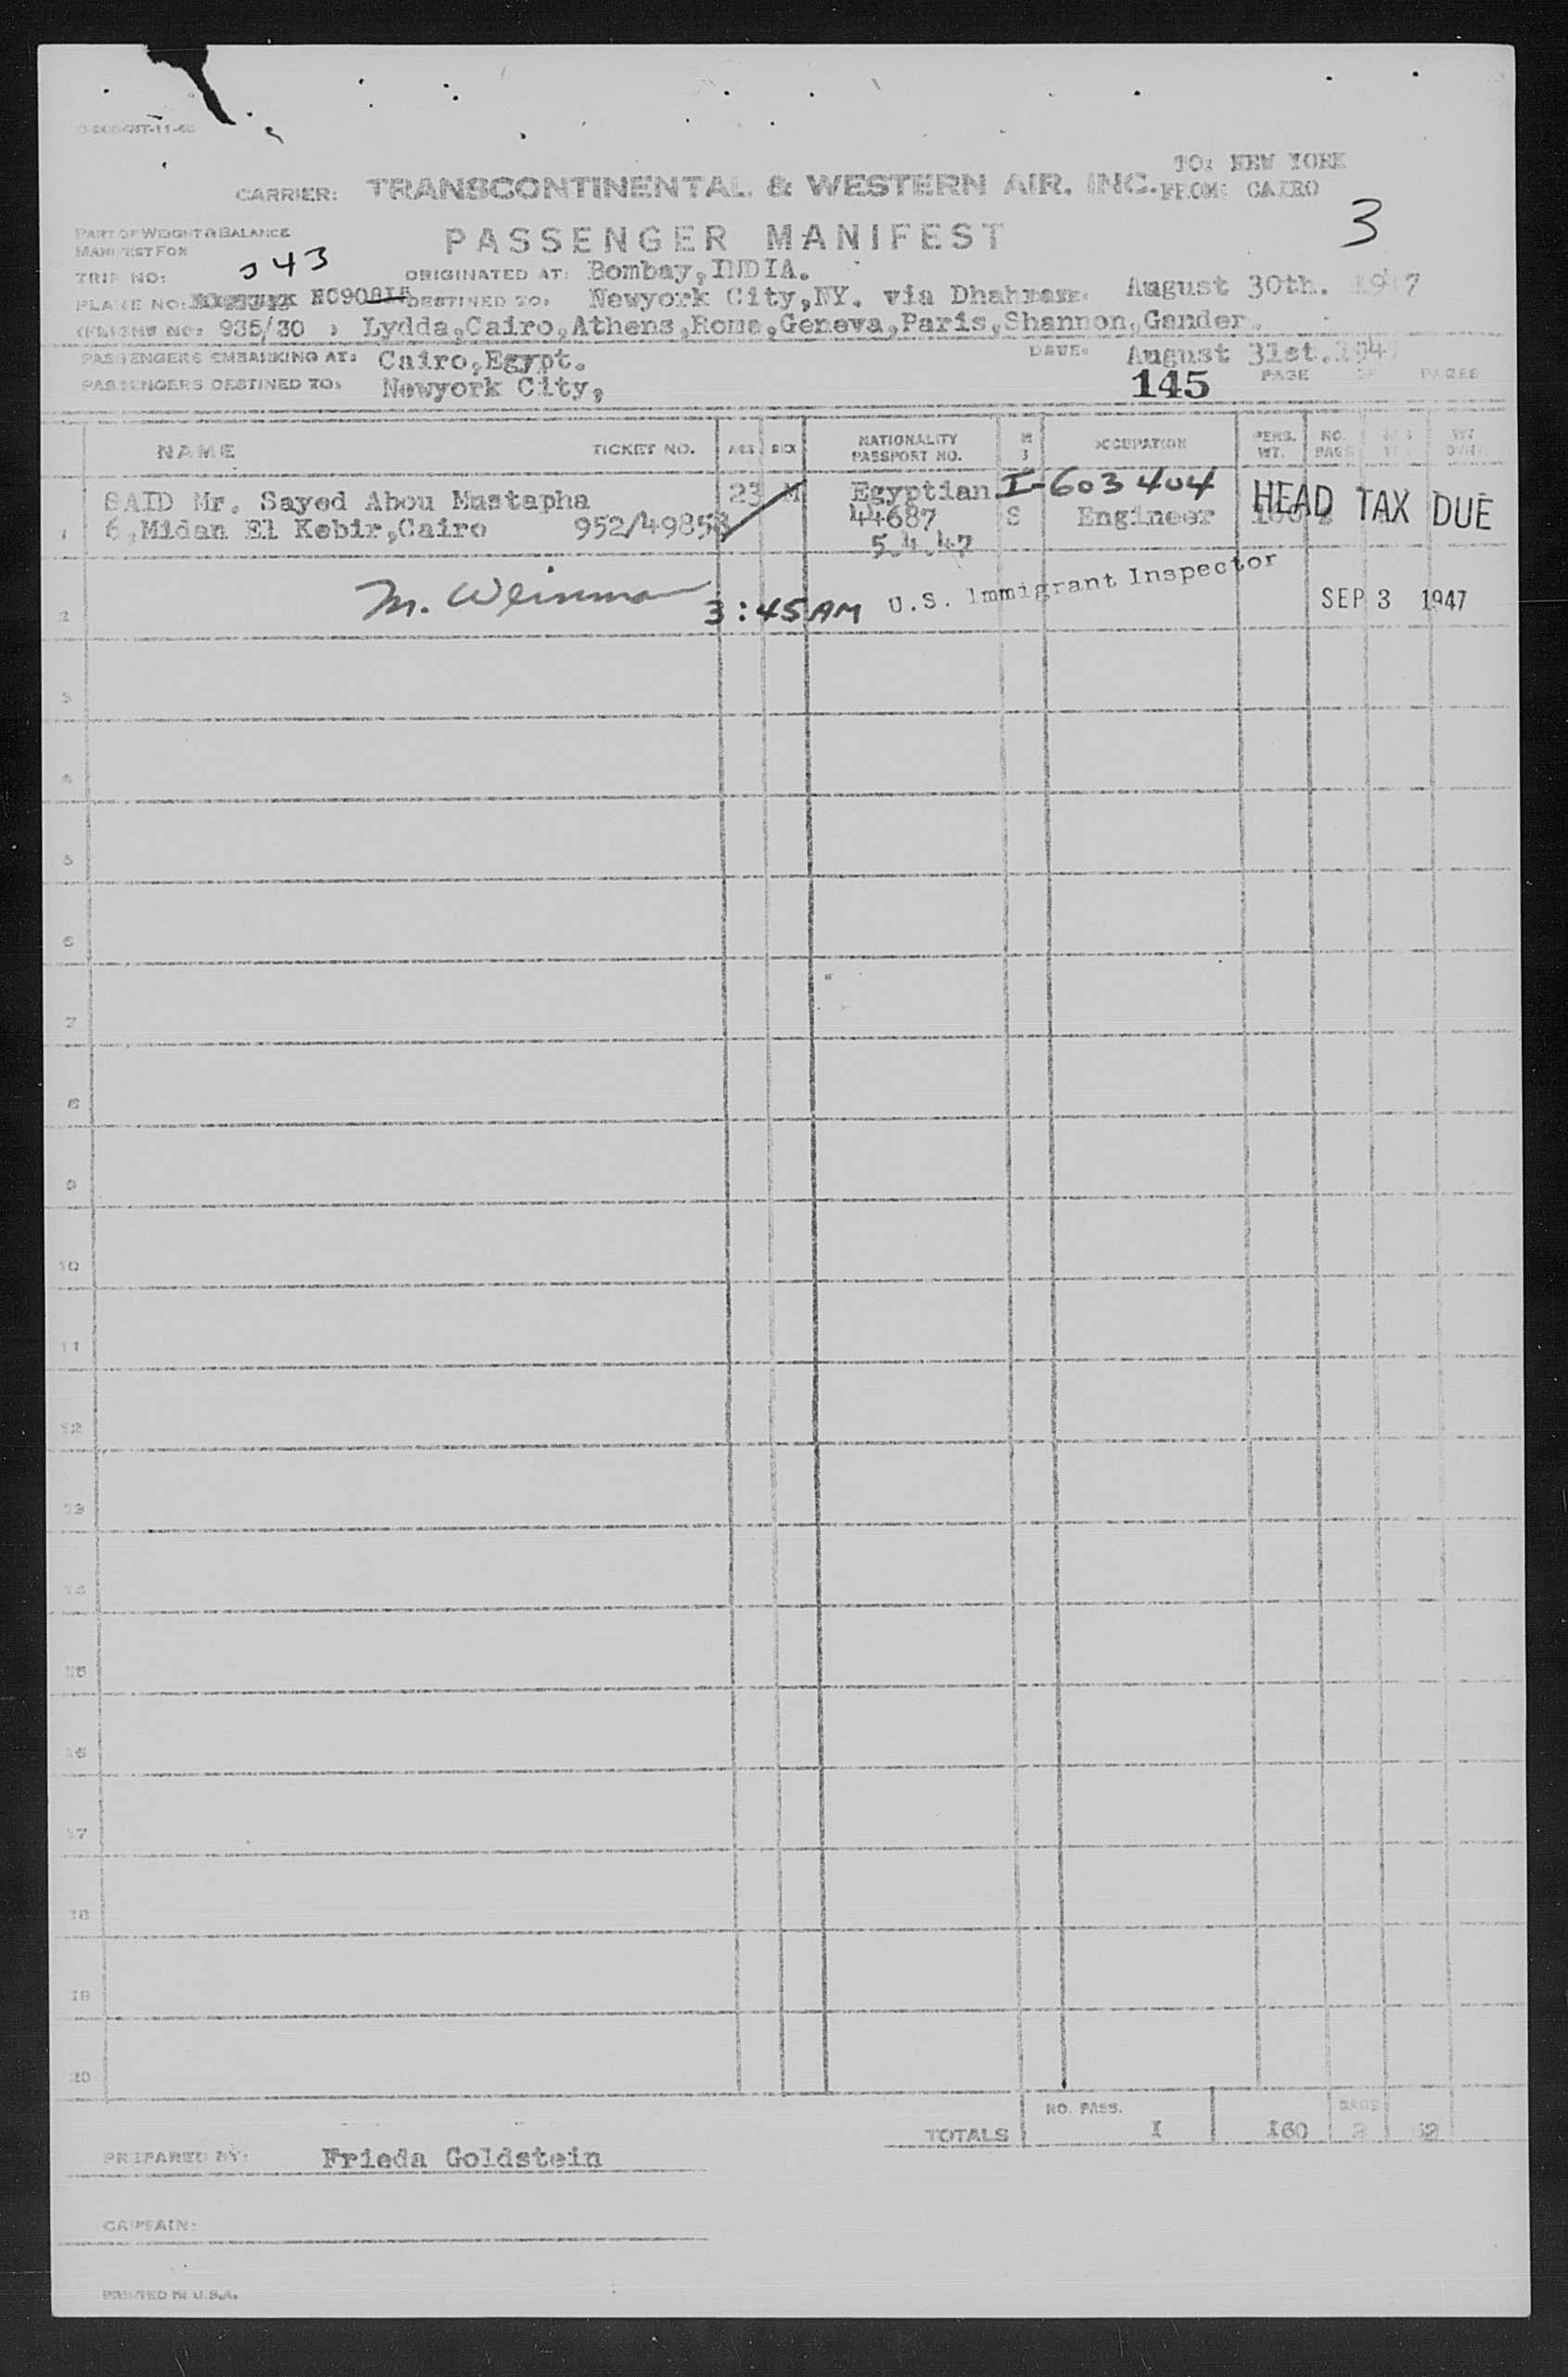 TO: NEW YORK
CARRIER: TRANSCONTINENTAL & WESTERN AIR. INC. FROM: CAIRO
3
PART OF WEIGHT & BALANCE
MANIFEST FOR
PASSENGER MANIFEST
TRIP NO: 943 ORIGINATED AT: Bombay,INDIA.
PLANE NO: DESTINED TO: Newyork City,NY. via August 30th. 1947
935/30 Lydda,Cairo,Athens,Rome,Geneva,Paris,Shannon,Gander.
PASSENGERS EMBARKING AT: Cairo,Egypt. DATE: August 31st.194
PASSENGERS DESTINED TO: Newyork City, 145 PAGE OF PAGES
NAME TICKET NO. AGE SEX NATIONALITY PASSPORT NO. M S OCCUPATION PERS. WT. NO. BAGS
SAID Mr. Sayed Abou Mustapha 23 M Egyptian I-603404 HEAD TAX DUE
1 6,Midan El Kebir,Cairo 952/49858 44687 S Engineer
5.4.47
2 M. Weinman 3:45AM U.S. Immigrant Inspector SEP 3 1947
3
4
5
6
7
8
9
10
11
12
13
14
15
16
17
18
19
20
NO. PASS. BAGS
TOTALS I 160 2
PREPARED BY: Frieda Goldstein
CAPTAIN:
PRINTED IN U.S.A.